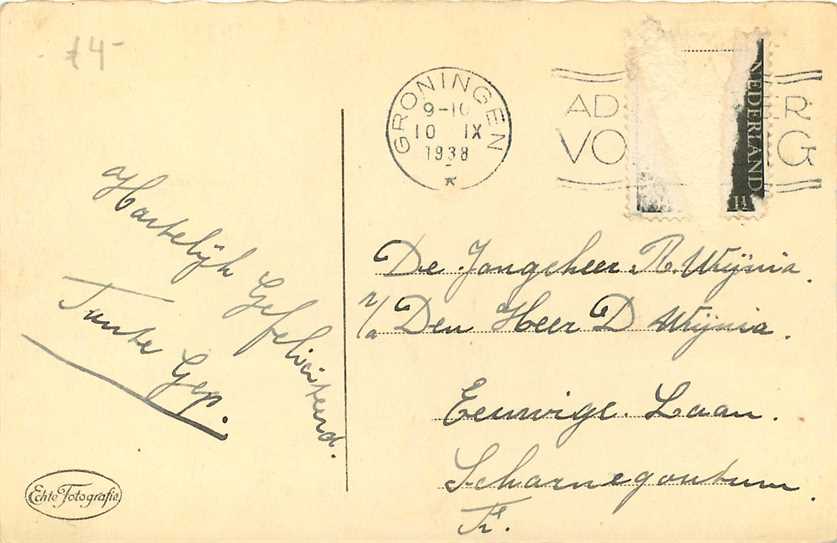 £4-
GRONINGEN
9-10
10 IX
1938
AD R
VO G
NEDERLAND
1½
Hartelijk Gefeliciteerd.
Tante Gep.
De Jongeheer R Wijnia.
p/a Den Heer D Wijnia.
Eeuwige Laan.
Scharnegoutum
Fr.
Echte Fotografie